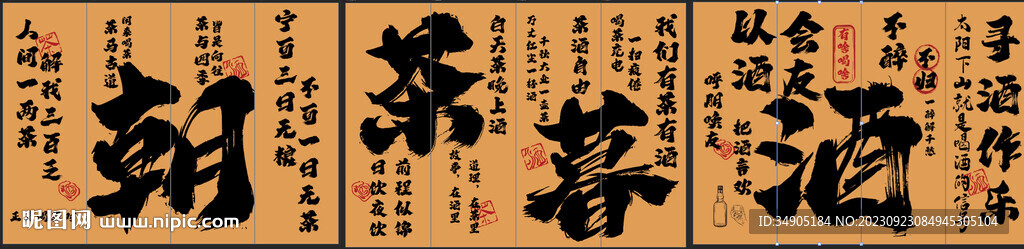 宁可三日无粮
不可一日无茶
皆是向往
茶与四季
何来喝茶
茶马古道
朝
人间一两茶
解我三百乏
我们有茶有酒
一扫疲倦
喝茶充电
茶酒自由
千秋大业一壶茶
万丈红尘一杯酒
白天茶晚上酒
茶
暮
道理，在茶里
故事，在酒里
前程似锦
日饮夜饮
寻酒作乐
太阳下山就是喝酒的信号
不醉
不归
一醉解千愁
有啥喝啥
以酒会友
酒
呼朋唤友
把酒言欢
昵图网
www.nipic.com
ID:34905184 NO:20230923084945305104